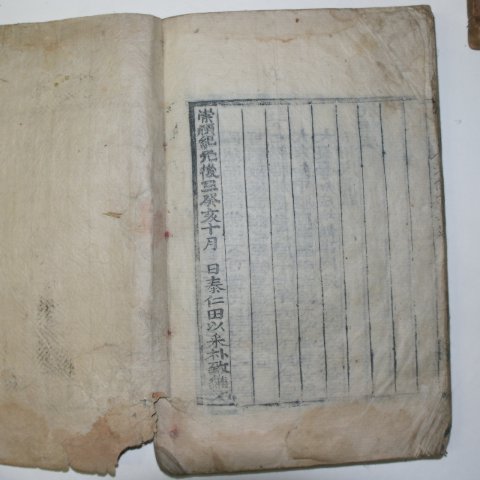 崇禎紀元後三癸亥十月 日泰仁田以采朴致維